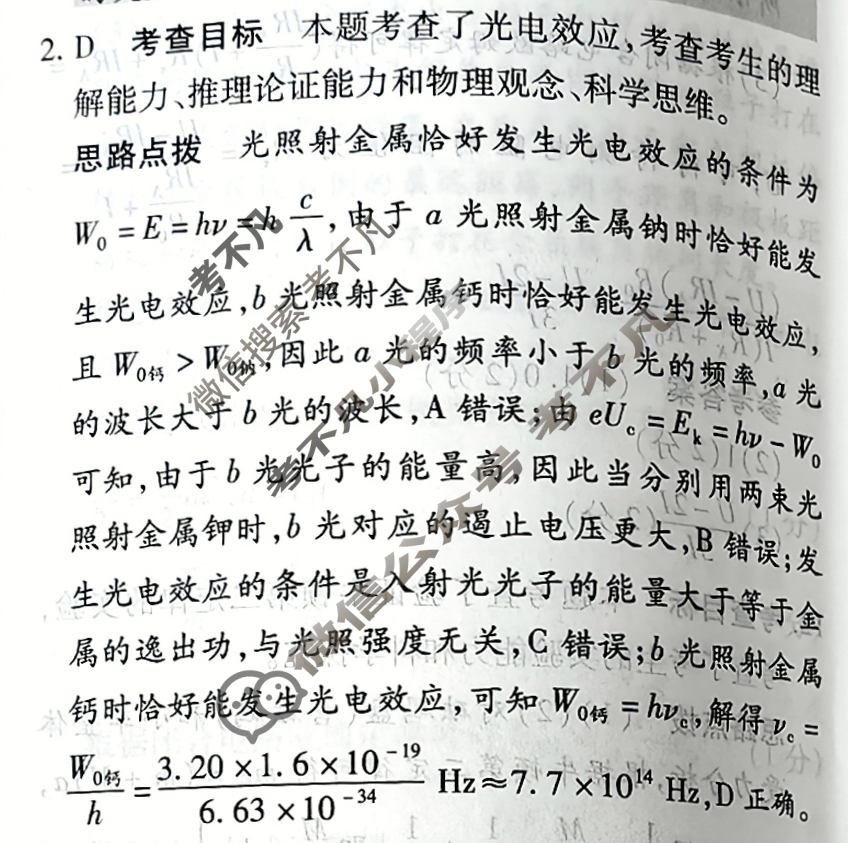 2. D 考查目标 本题考查了光电效应,考查考生的理
解能力、推理论证能力和物理观念、科学思维。
思路点拨 光照射金属恰好发生光电效应的条件为
W₀ = E = hν = h c/λ ,由于 a 光照射金属钠时恰好能发
生光电效应,b 光照射金属钙时恰好能发生光电效应,
且 W₀钙 > W₀钠,因此 a 光的频率小于 b 光的频率,a 光
的波长大于 b 光的波长,A 错误;由 eU_c = E_k = hν - W₀
可知,由于 b 光光子的能量高,因此当分别用两束光
照射金属钾时,b 光对应的遏止电压更大,B 错误;发
生光电效应的条件是入射光光子的能量大于等于金
属的逸出功,与光照强度无关,C 错误;b 光照射金属
钙时恰好能发生光电效应,可知 W₀钙 = hν_c,解得 ν_c =
W₀钙/h = (3.20 × 1.6 × 10⁻¹⁹)/(6.63 × 10⁻³⁴) Hz ≈ 7.7 × 10¹⁴ Hz,D 正确。
考不凡
微信搜索考不凡
考不凡小程序
微信公众号 考不凡